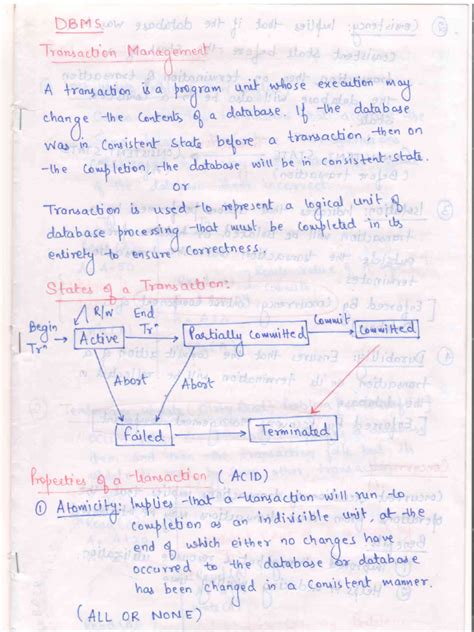 DBMS
Transaction Management
A transaction is a program unit whose execution may
change the contents of a database. If the database
was in consistent state before a transaction, then on
the completion, the database will be in consistent state.
or
Transaction is used to represent a logical unit of
database processing that must be completed in its
entirety to ensure correctness.
States of a Transaction:
R/W End Commit
Begin Trⁿ
Trⁿ Active Partially Committed Committed
Abort Abort
Failed Terminated
Properties of a transaction (ACID)
① Atomicity: Implies that a transaction will run to
completion as an indivisible unit, at the
end of which either no changes have
occurred to the database or database
has been changed in a consistent manner.
(ALL OR NONE)